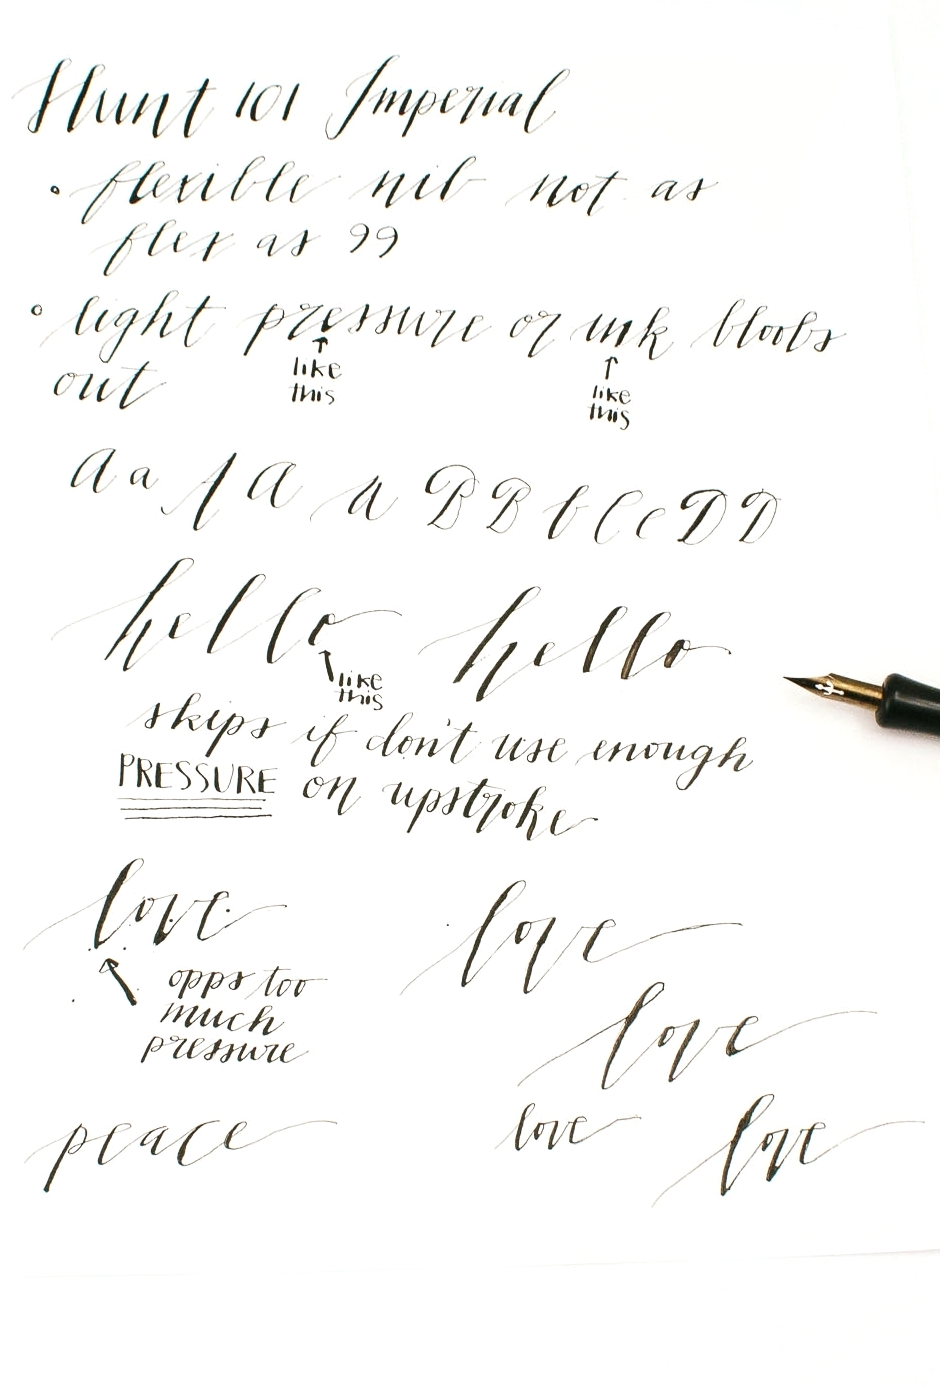 Hunt 101 Imperial
• flexible nib not as
flex as 99
• light pressure or ink bloobs
out
↑
like
this
↑
like
this
A a A A a B B b C c D D
hello hello
like
this
skips if don't use enough
PRESSURE on upstroke
love love
opps too
much
pressure
love
peace love love